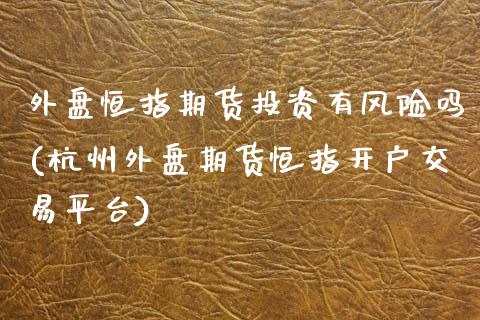 外盘恒指期货投资有风险吗
(杭州外盘期货恒指开户交
易平台)